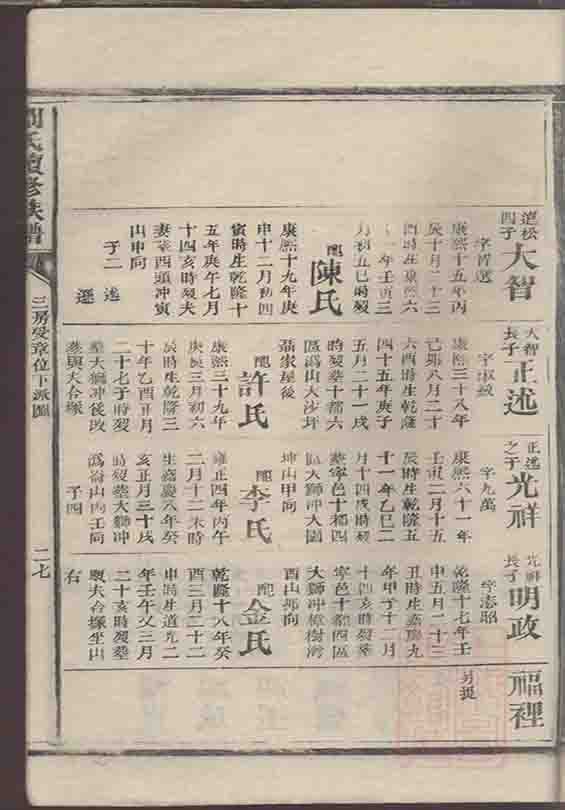 周氏續修族譜
三房受章位下派圖
二七
道松
四子
大智
字哲選
康熙十五年丙
辰十月二十三
酉時生康熙六
十一年壬寅三
月初五巳時歿
配
陳氏
康熙十九年庚
申十二月初四
寅時生乾隆十
五年庚午七月
十四亥時歿夫
妻葬西頭冲寅
山申向
子二
述
選
大智
長子
正述
字淑敏
康熙三十八年
己卯八月二十
六酉時生乾隆
四十五年庚子
五月二十一戌
時歿葬十都六
區潙山大沙坪
聶家屋後
配
許氏
康熙三十九年
庚辰三月初六
辰時生乾隆三
十年乙酉正月
二十七子時歿
葬大獅冲後改
葬與夫合塚
正述
之子
光祥
字九萬
康熙六十一年
壬寅二月十五
辰時生乾隆五
十一年乙巳二
月十四戌時歿
葬寧邑十都四
區大獅冲大園
坤山甲向
配
李氏
雍正四年丙午
二月十二未時
生嘉慶八年癸
亥正月三十戌
時歿葬大獅冲
爲崙山丙壬向
子四
光祥
長子
明政
字志昭
乾隆十七年壬
申五月二十三
丑時生嘉慶九
年甲子十二月
十四亥時歿葬
寧邑十都四區
大獅冲樟樹灣
酉山卯向
配
金氏
乾隆十八年癸
酉三月二十二
申時生道光二
年壬午又三月
二十亥時歿葬
與夫合塚坐山
右
福裡
另提